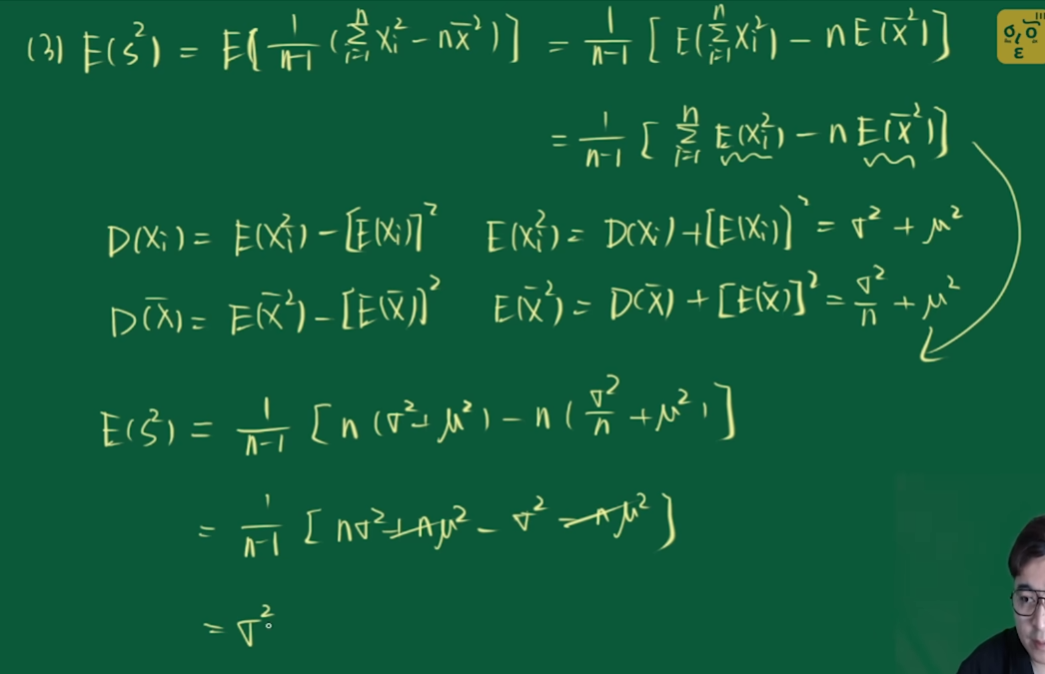 (3) E(S²) = E[1/(n-1) (∑_{i=1}^{n} Xᵢ² - nX̄²)] = 1/(n-1) [E(∑_{i=1}^{n} Xᵢ²) - nE(X̄²)]
= 1/(n-1) [∑_{i=1}^{n} E(Xᵢ²) - nE(X̄²)]
D(Xᵢ) = E(Xᵢ²) - [E(Xᵢ)]² E(Xᵢ²) = D(Xᵢ) + [E(Xᵢ)]² = σ² + μ²
D(X̄) = E(X̄²) - [E(X̄)]² E(X̄²) = D(X̄) + [E(X̄)]² = σ²/n + μ²
E(S²) = 1/(n-1) [n(σ² + μ²) - n(σ²/n + μ²)]
= 1/(n-1) [nσ² + nμ² - σ² - nμ²]
= σ²